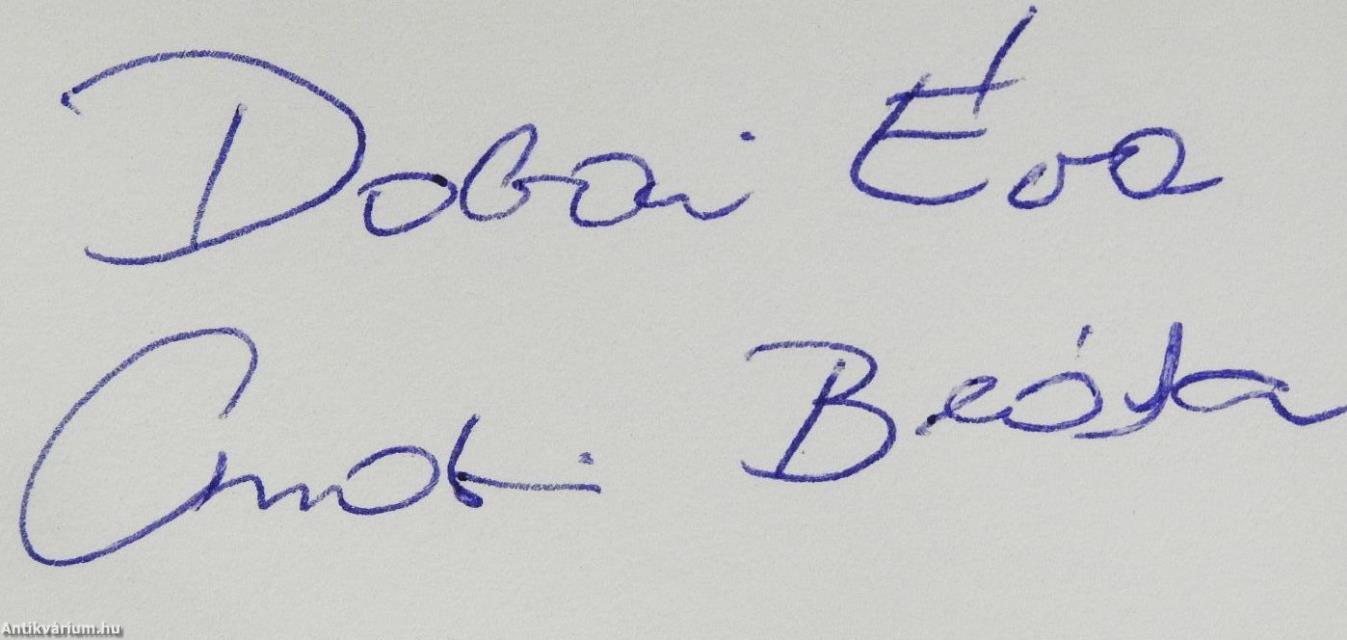 Dobai Éva
Beáta
Antikvárium.hu